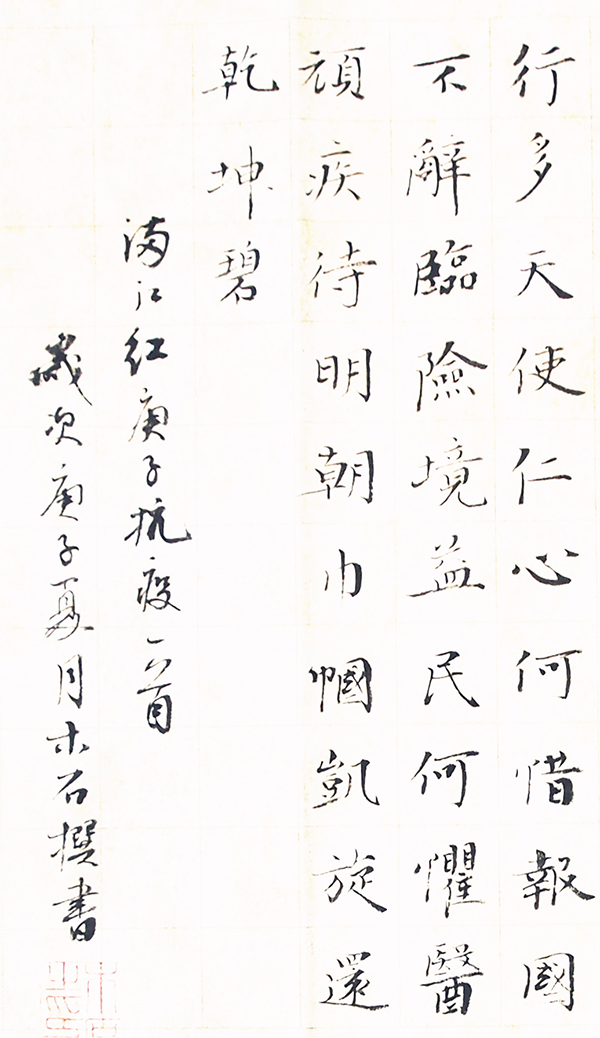 行多天使仁心何惜報國
不辭臨險境益民何懼醫
頑疾待明朝巾幗凱旋還
乾坤碧
滿江紅庚子抗疫一首
歲次庚子夏月木石撰書